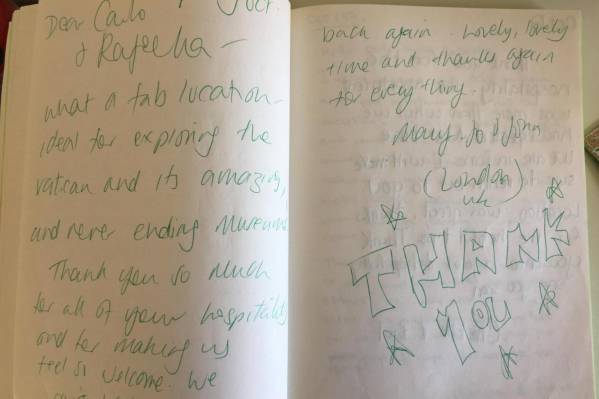 Oct.
Dear Carlo
& Rafeeka –
What a fab location –
ideal for exploring the
Vatican and its amazing,
and never ending Museums!
Thank you so much
for all of your hospitality
and for making us
feel so welcome. We
back again. Lovely, lovely
time and thanks again
for everything.
Mary, Jo & John
(London
UK)
THANK
YOU